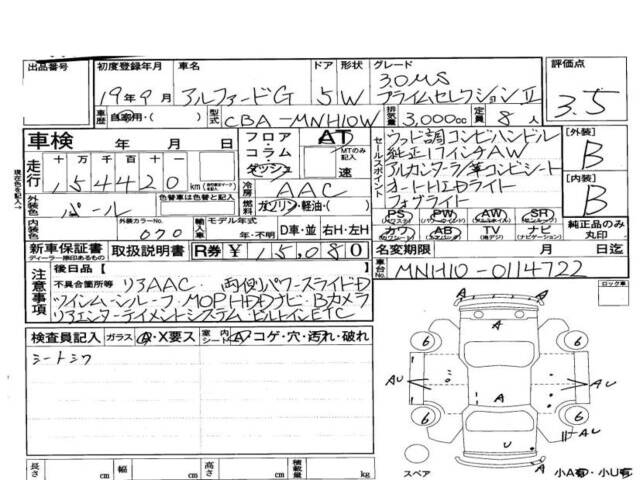 出品番号 初度登録年月 車名 ドア 形状 グレード 評価点
19年9月 アルファードG 5 W 3.0MS
プライムセレクションⅡ
車歴 自家用・( ) 型式 CBA-MNH10W 排気量 3,000cc 定員 8人 3.5
車検 年 月 日 フロア・コラム・ダッシュ AT MTのみ記入 速
セールスポイント ウッド調コンビハンドル
純正17インチAW
アルカンターラ/革コンビシート
オートHIDライト
フォグライト
[外装] B
[内装] B
現在色を記入→
走行 十 万 千 百 十 一
154420 km
冷房 AAC
外装色 パール 色替車は色替と記入 燃料 ガソリン・軽油・( )
内装色 外装カラーNo. 070 輸入車 モデル年式 年・不明 D車・並 右H・左H
PS (パワステ) PW (パワーウィンドウ) AW (アルミホイル) SR (サンルーフ)
カワ (カワシート) AB (エアバッグ) TV (地デジ) ナビ (ナビゲーション)
純正品のみ丸印
新車保証書 ディーラー捺印あるもの 取扱説明書 R券 ¥15,080 名変期限 月 日迄
注意事項 後日品【 】
不具合箇所等 リアAAC 両側パワースライドD
ツインムーンルーフ MOPHDDナビ・Bカメラ
リアエンターテイメントシステム ビルトインETC
車台No. MNH10-0114722
ロック車
検査員記入 ガラス A・X要ス 室内シート A コゲ・穴・汚れ・破れ
シートシワ
A A
6 6
AU A AU
A
6 6
AU
U
A
スペア 小A有・小U有
長さ cm 幅 cm 高さ cm 積載量 kg